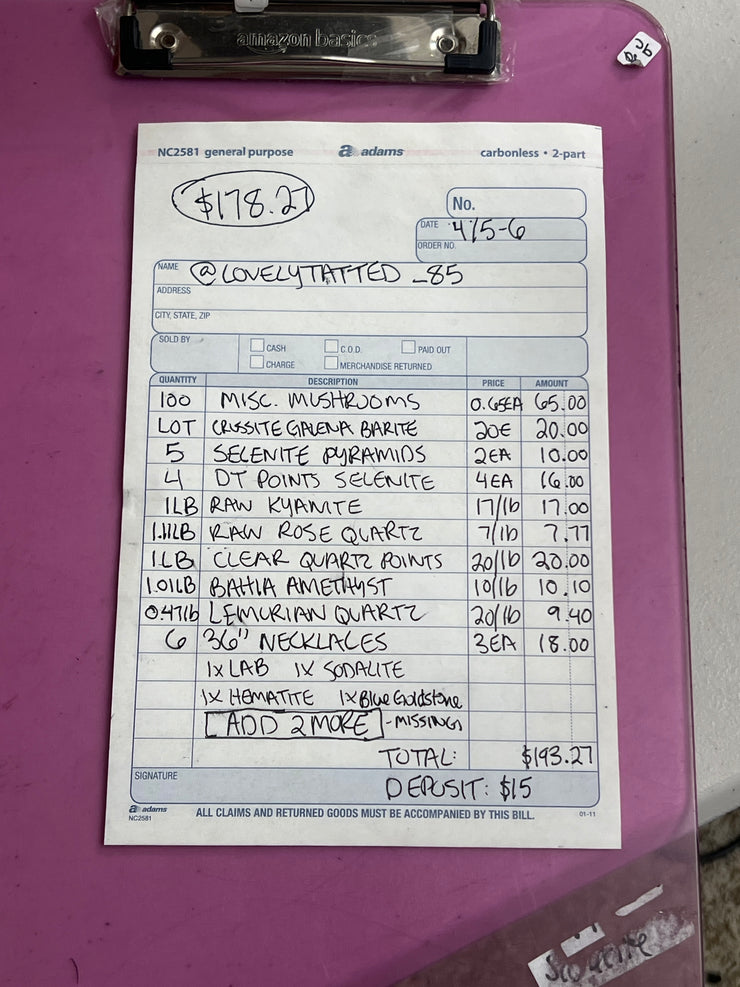 amazon basics
NC2581 general purpose a adams carbonless • 2-part
$178.27
No.
DATE 4/5-6
ORDER NO.
NAME @LOVELYTATTED_85
ADDRESS
CITY, STATE, ZIP
SOLD BY CASH C.O.D. PAID OUT
CHARGE MERCHANDISE RETURNED
QUANTITY DESCRIPTION PRICE AMOUNT
100 MISC. MUSHROOMS 0.65EA 65.00
LOT CRUSSITE GALENA BARITE 20E 20.00
5 SELENITE PYRAMIDS 2EA 10.00
4 DT POINTS SELENITE 4EA 16.00
1LB RAW KYANITE 17/lb 17.00
1.11LB RAW ROSE QUARTZ 7/lb 7.77
1LB CLEAR QUARTZ POINTS 20/lb 20.00
1.01LB BAHIA AMETHYST 10/lb 10.10
0.47lb LEMURIAN QUARTZ 20/lb 9.40
6 36" NECKLACES 3EA 18.00
1x LAB 1x SODALITE
1x HEMATITE 1x Blue Goldstone
[ADD 2 MORE] - MISSING
TOTAL: $193.27
SIGNATURE DEPOSIT: $15
a adams
NC2581 ALL CLAIMS AND RETURNED GOODS MUST BE ACCOMPANIED BY THIS BILL. 01-11